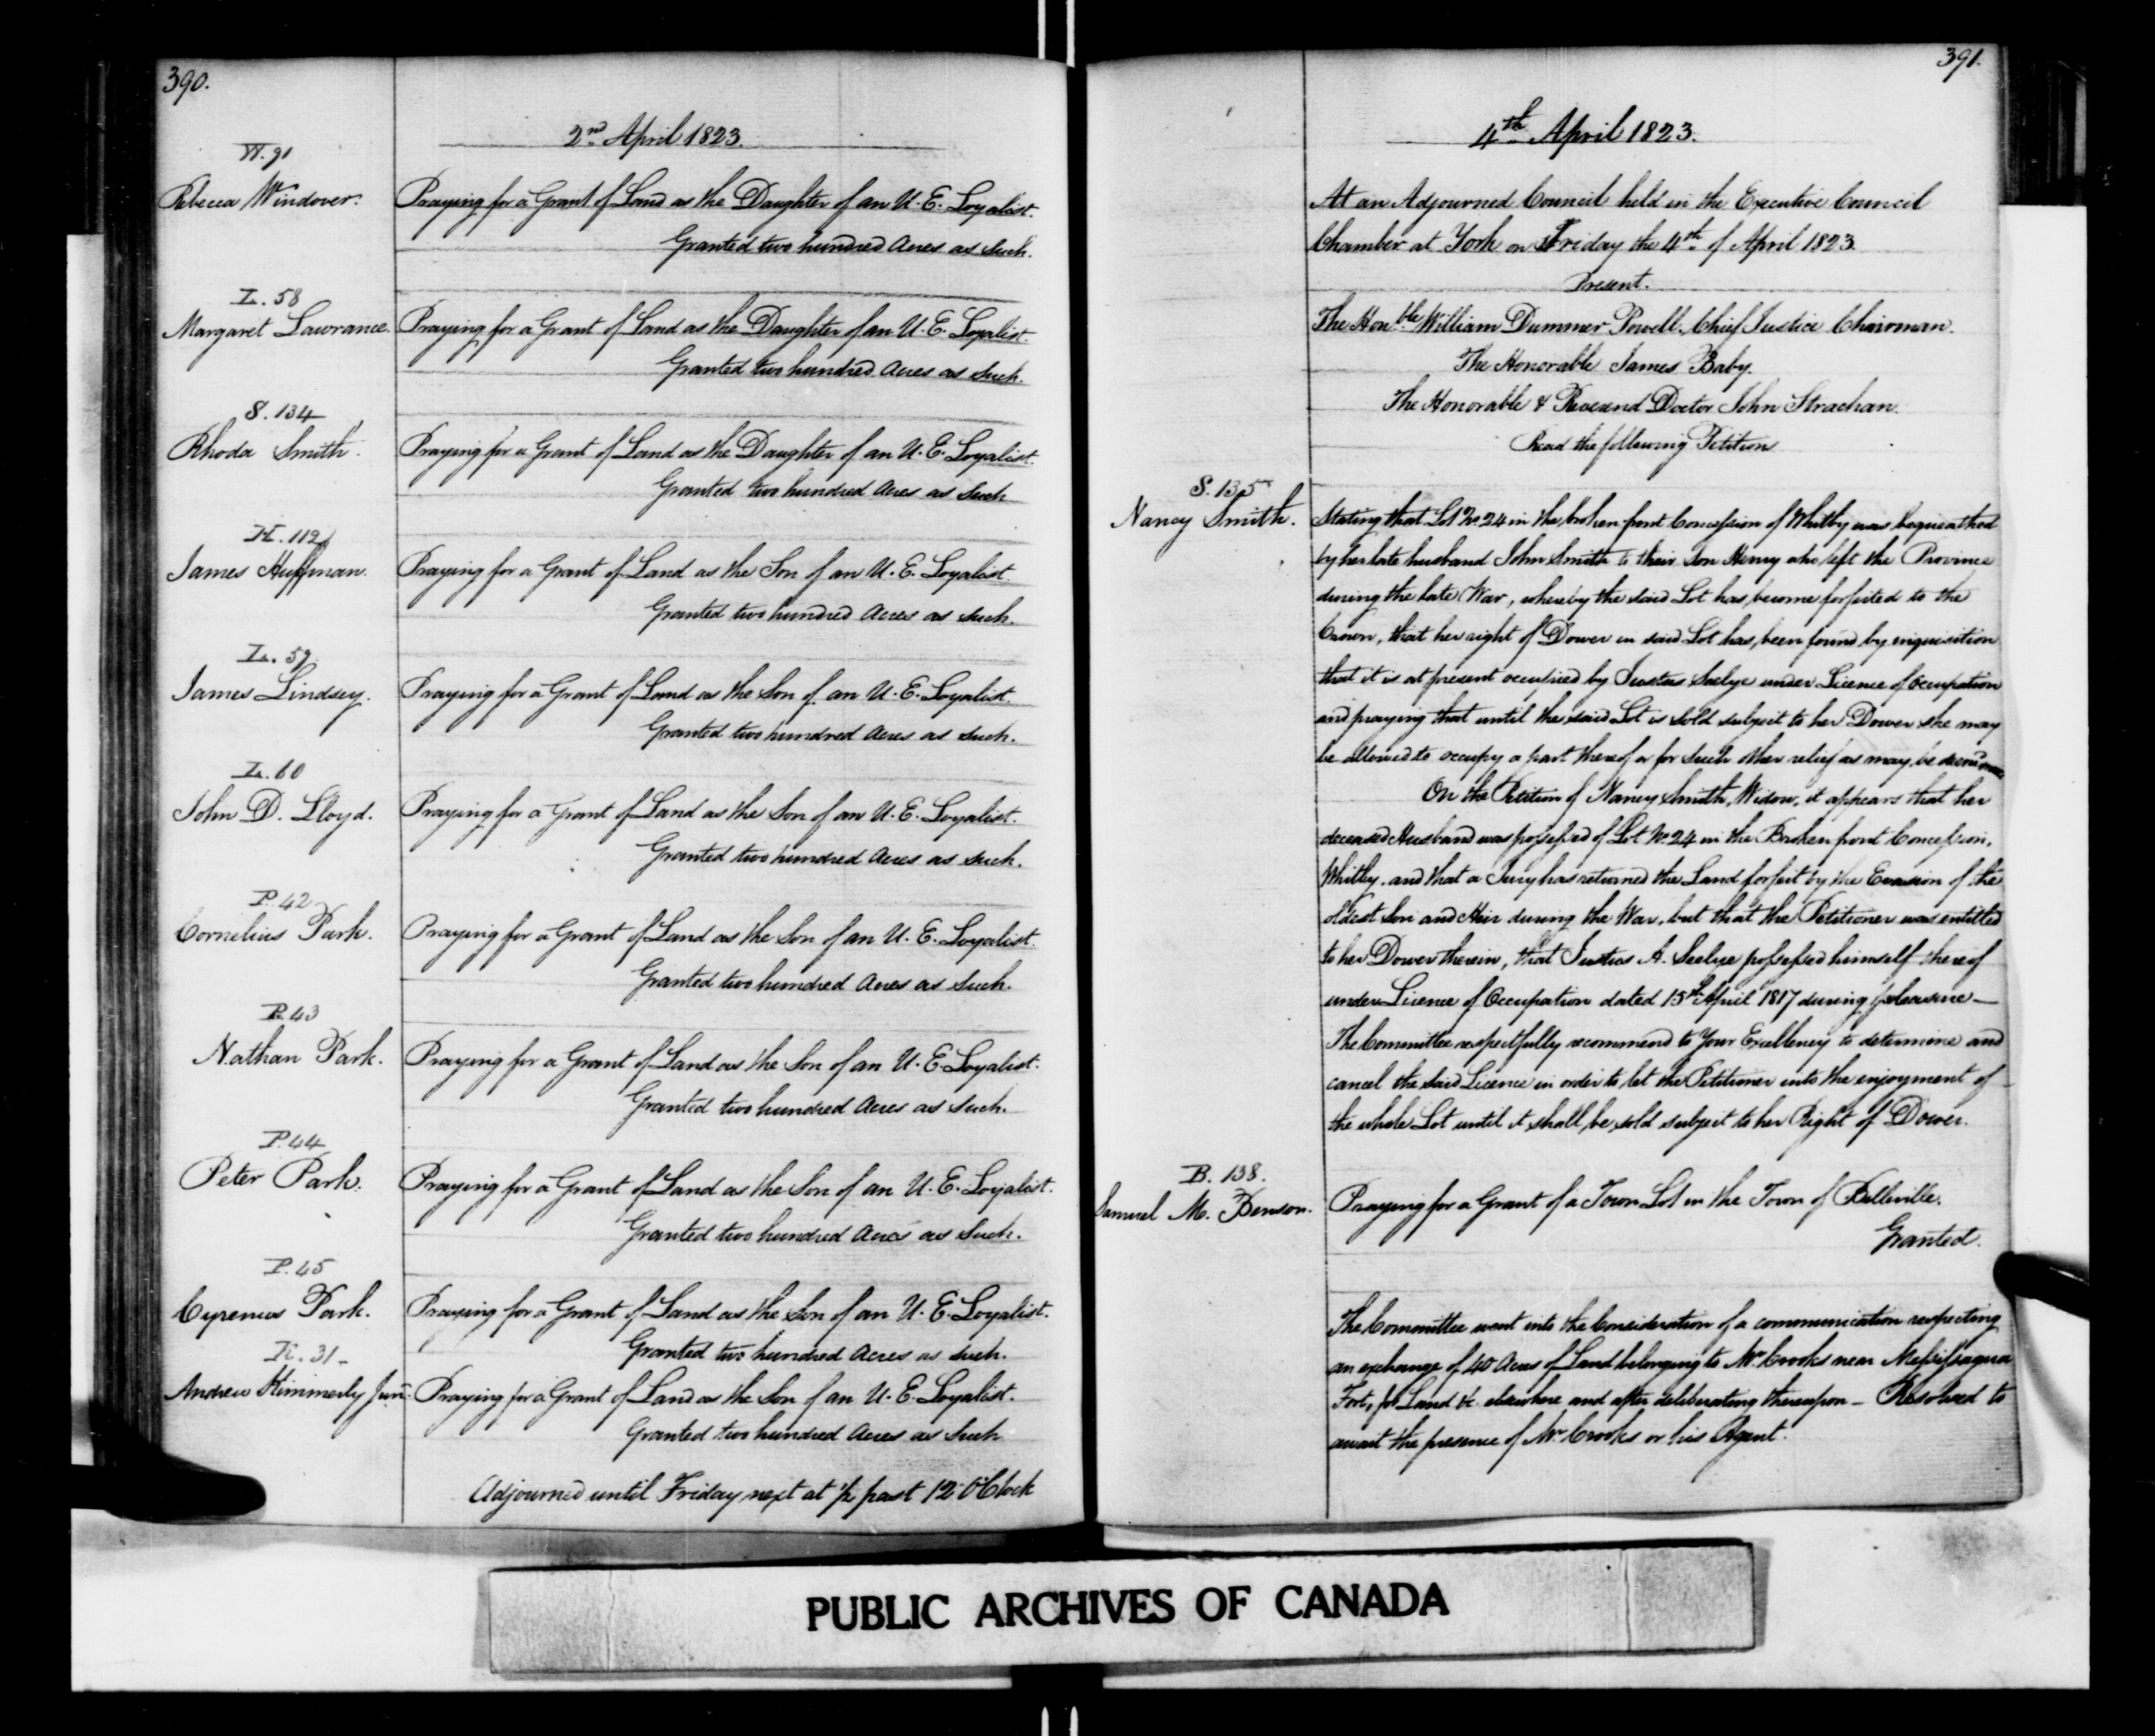 390.
2nd April 1823.
W. 91
Rebecca Windover. Praying for a Grant of Land as the Daughter of an U. E. Loyalist.
Granted two hundred Acres as Such.
L. 58
Margaret Lawrance. Praying for a Grant of Land as the Daughter of an U. E. Loyalist.
Granted two hundred Acres as such.
S. 134
Rhoda Smith. Praying for a Grant of Land as the Daughter of an U. E. Loyalist.
Granted two hundred Acres as Such
H. 112
James Huffman. Praying for a Grant of Land as the Son of an U. E. Loyalist.
Granted two hundred Acres as such.
L. 59
James Lindsey. Praying for a Grant of Land as the Son of an U. E. Loyalist.
Granted two hundred Acres as such.
L. 60
John D. Lloyd. Praying for a Grant of Land as the Son of an U. E. Loyalist.
Granted two hundred Acres as such.
P. 42
Cornelius Park. Praying for a Grant of Land as the Son of an U. E. Loyalist.
Granted two hundred Acres as Such.
P. 43
Nathan Park. Praying for a Grant of Land as the Son of an U. E. Loyalist.
Granted two hundred Acres as such.
P. 44
Peter Park. Praying for a Grant of Land as the Son of an U. E. Loyalist.
Granted two hundred Acres as Such.
P. 45
Cyrenus Park. Praying for a Grant of Land as the Son of an U. E. Loyalist.
Granted two hundred Acres as such.
K. 31
Andrew Kimmerly Junr. Praying for a Grant of Land as the Son of an U. E. Loyalist.
Granted two hundred Acres as Such
Adjourned until Friday next at ½ past 12 O'Clock
391.
4th April 1823.
At an Adjourned Council held in the Executive Council
Chamber at York on Friday the 4th of April 1823.
Present.
The Honble William Dummer Powell, Chief Justice Chairman.
The Honorable James Baby.
The Honorable & Reverend Doctor John Strachan.
Read the following Petition
S. 135
Nancy Smith. Stating that Lot No. 24 in the broken front Concession of Whitby was bequeathed
by her late husband John Smith to their Son Henry who left the Province
during the late War, whereby the said Lot has become forfeited to the
Crown, that her right of Dower in said Lot has been found by inquisition
that it is at present occupied by Justus Seelye under Licence of Occupation
and praying that until the said Lot is Sold subject to her Dower she may
be allowed to occupy a part thereof or for such other relief as may be
On the Petition of Nancy Smith, Widow, it appears that her
deceased Husband was possessed of Lot No. 24 in the Broken front Concession,
Whitby. and that a Jury has returned the Land forfeit by the Evasion of the
oldest Son and Heir during the War, but that the Petitioner was entitled
to her Dower therein, that Justus A. Seelye possessed himself thereof
under Licence of Occupation dated 15th April 1817 during pleasure —
The Committee respectfully recommend to Your Excellency to determine and
cancel the said Licence in order to let the Petitioner into the enjoyment of
the whole Lot until it shall be sold subject to her Right of Dower.
B. 138.
Samuel M. Benson. Praying for a Grant of a Town Lot in the Town of Belleville.
Granted.
The Committee went into the Consideration of a communication respecting
an exchange of 40 Acres of Land belonging to Mr. Crooks near Messissagua
Fort, for Land &c. elsewhere and after deliberating thereupon — Resolved to
await the presence of Mr. Crooks or his Agent.
PUBLIC ARCHIVES OF CANADA